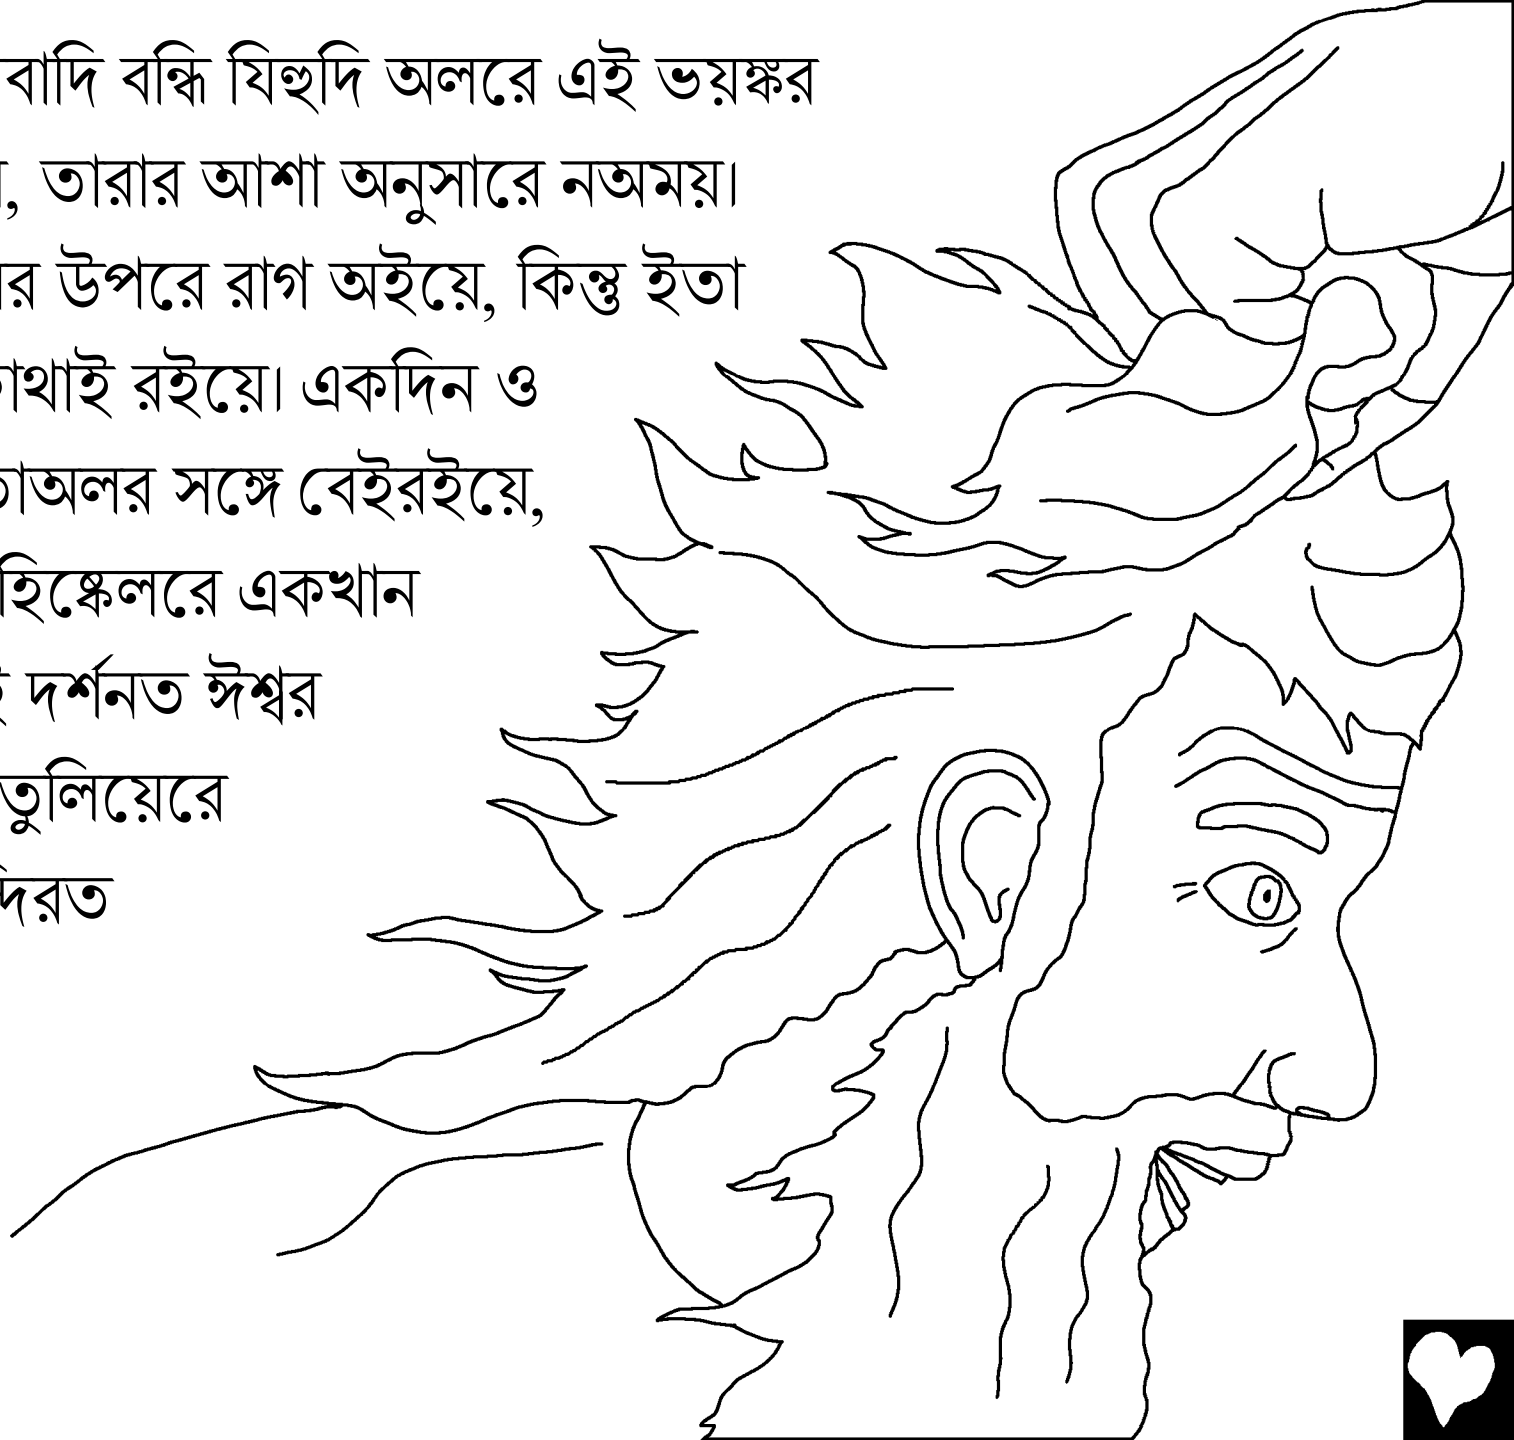 বাদি বন্ধি যিহুদি অলরে এই ভয়ঙ্কর
তারার আশা অনুসারে নঅময়।
উপরে রাগ অইয়ে, কিন্তু ইতা
রইয়ে। একদিন ও
সঙ্গে বেইরইয়ে,
একখান
দর্শনত ঈশ্বর
তুলিয়েরে